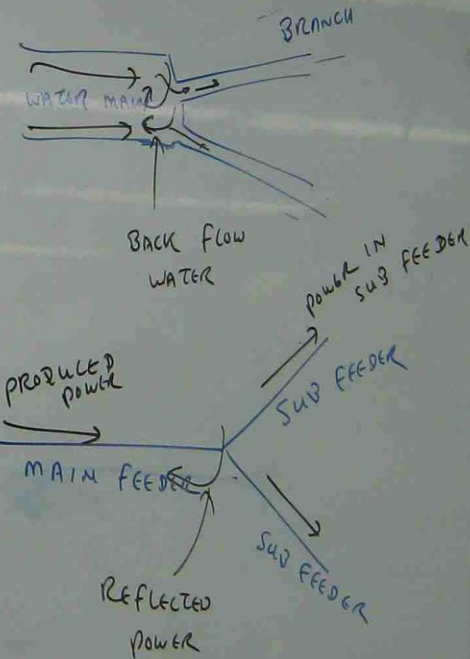 BRANCH
WATER MAIN
BACK FLOW
WATER
POWER IN
SUB FEEDER
PRODUCED
POWER
SUB FEEDER
MAIN FEEDER
SUB FEEDER
REFLECTED
POWER